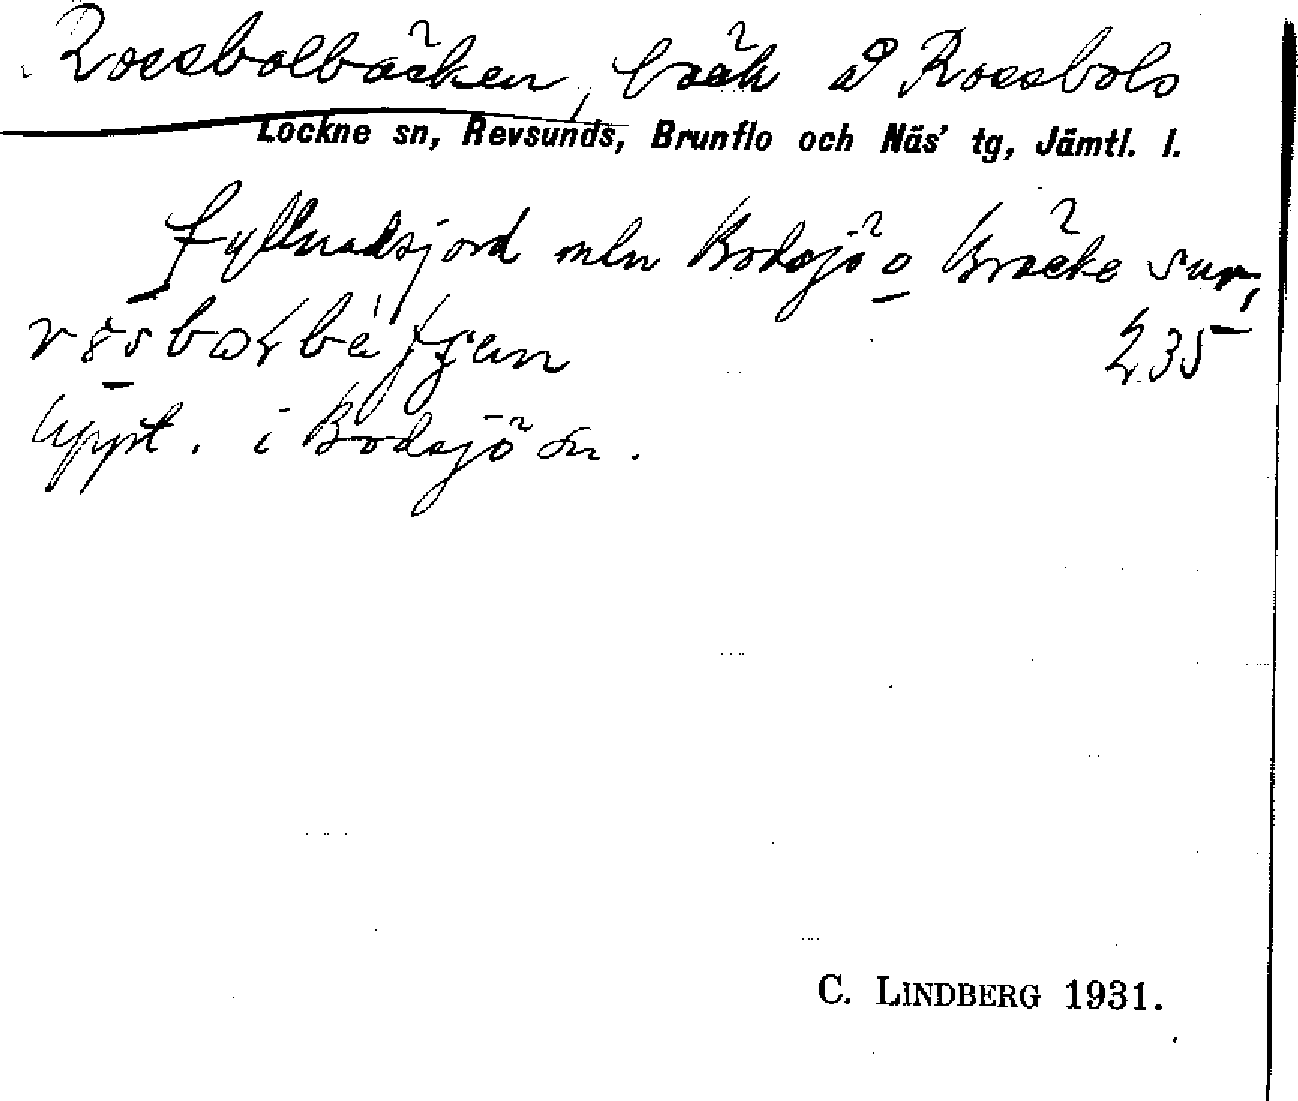 Rossbolbäcken, bäck å Rossbols
Lockne sn, Revsunds, Brunflo och Näs' tg, Jämtl. l.
fyllnadsjord mln Bodsjö o Bräcke snr,
235
Uppt. i Bodsjö sn.
C. LINDBERG 1931.